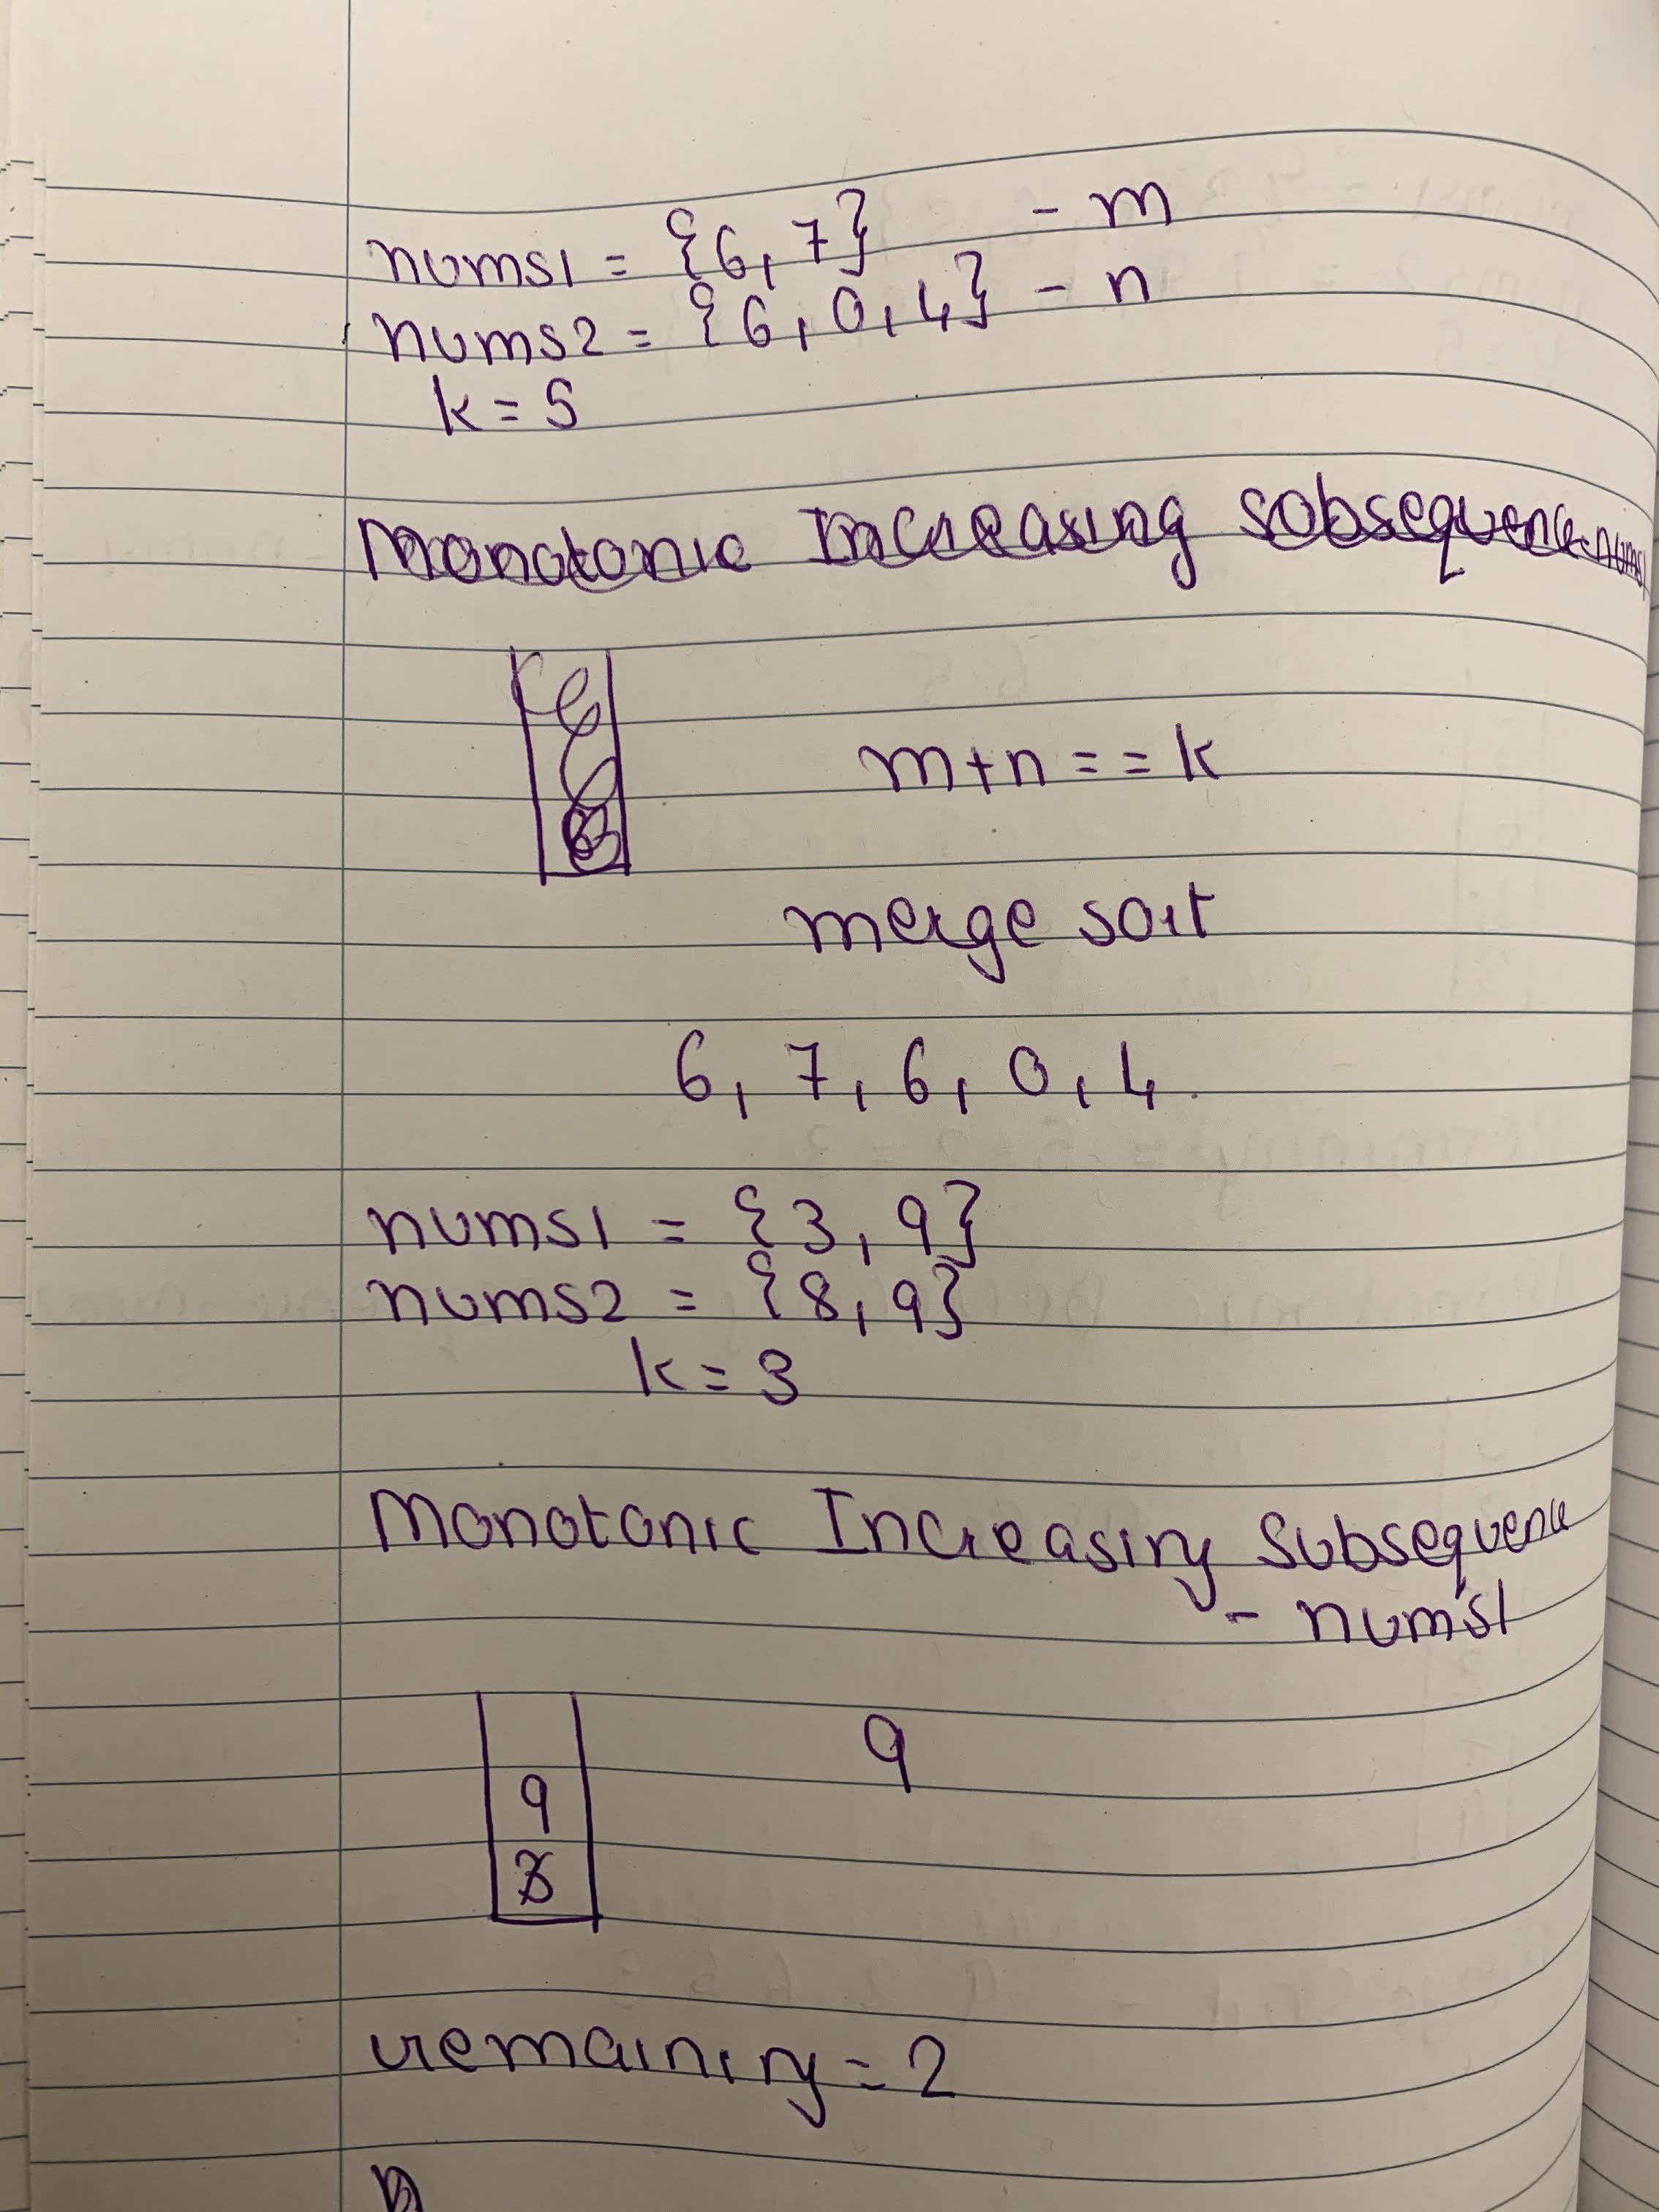 nums1 = {6, 7} - m
nums2 = {6, 0, 4} - n
k = 5
Monotonic Increasing Subsequence - nums1
m+n == k
merge sort
6, 7, 6, 0, 4
nums1 = {3, 9}
nums2 = {8, 9}
k = 3
Monotonic Increasing Subsequence
- nums1
9
9
3
remaining = 2